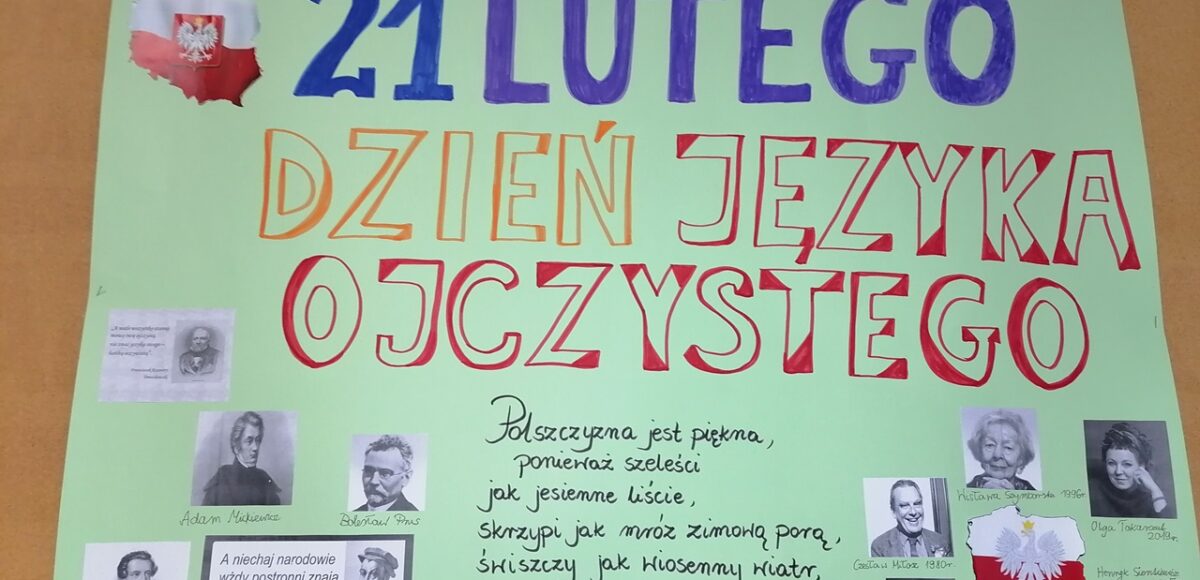 21 LUTEGO
DZIEŃ JĘZYKA
OJCZYSTEGO
Polszczyzna jest piękna,
ponieważ szeleści
jak jesienne liście,
skrzypi jak mróz zimową porą,
świszczy jak wiosenny wiatr,
Adam Mickiewicz
Bolesław Prus
A niechaj narodowie
wżdy postronni znają
Wisława Szymborska 1996r.
Olga Tokarczuk
2019r.
Czesław Miłosz 1980r.
Henryk Sienkiewicz